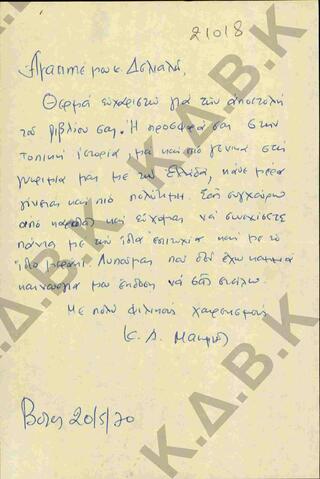 21018
Ἀγαπητέ μου κ. Δεληαλῆ,
Θερμά εὐχαριστῶ γιά τήν ἀποστολή
τοῦ βιβλίου σας. Ἡ προσφορά σας στήν
τοπική ἱστορία, μά καί πιό γενικά στή
γνωριμία μας μέ τήν Ἑλλάδα, κάθε μέρα
γίνεται καί πιό πολύτιμη. Σᾶς συγχαίρω
ἀπό καρδιᾶς καί εὔχομαι νά συνεχίσετε
πάντα μέ τήν ἴδια ἐπιτυχία καί μέ τό
ἴδιο μεράκι. Λυποῦμαι πού δέν ἔχω καμμιά
καινούργια μου ἔκδοση νά σᾶς στείλω.
Μέ πολύ φιλικούς χαιρετισμούς
Κ. Α. Μακρῆς
Βόλος 20/5/70
Κ.Δ.Β.Κ
Κ.Δ.Β.Κ
Κ.Δ.Β.Κ